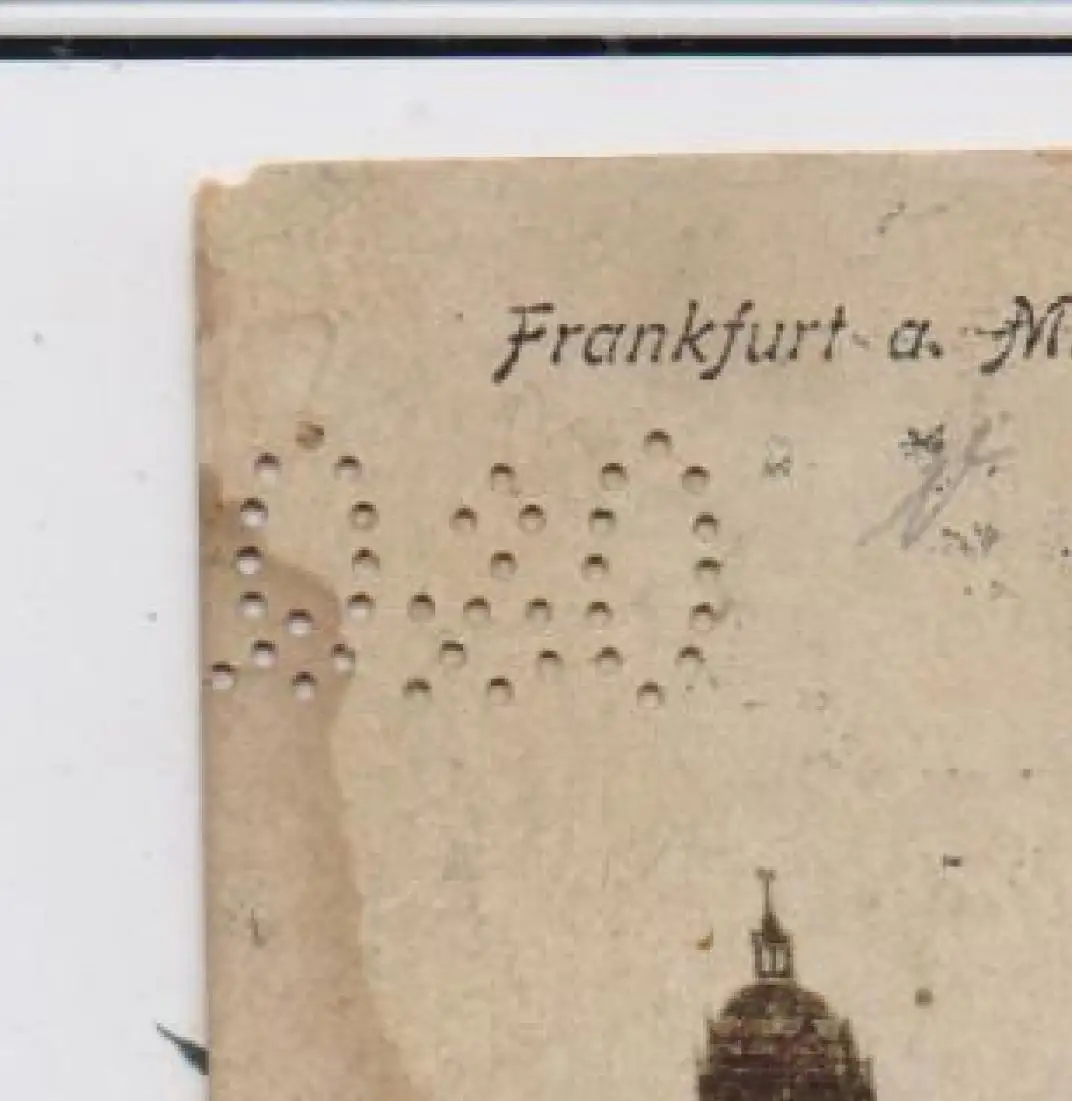 Frankfurt a. M